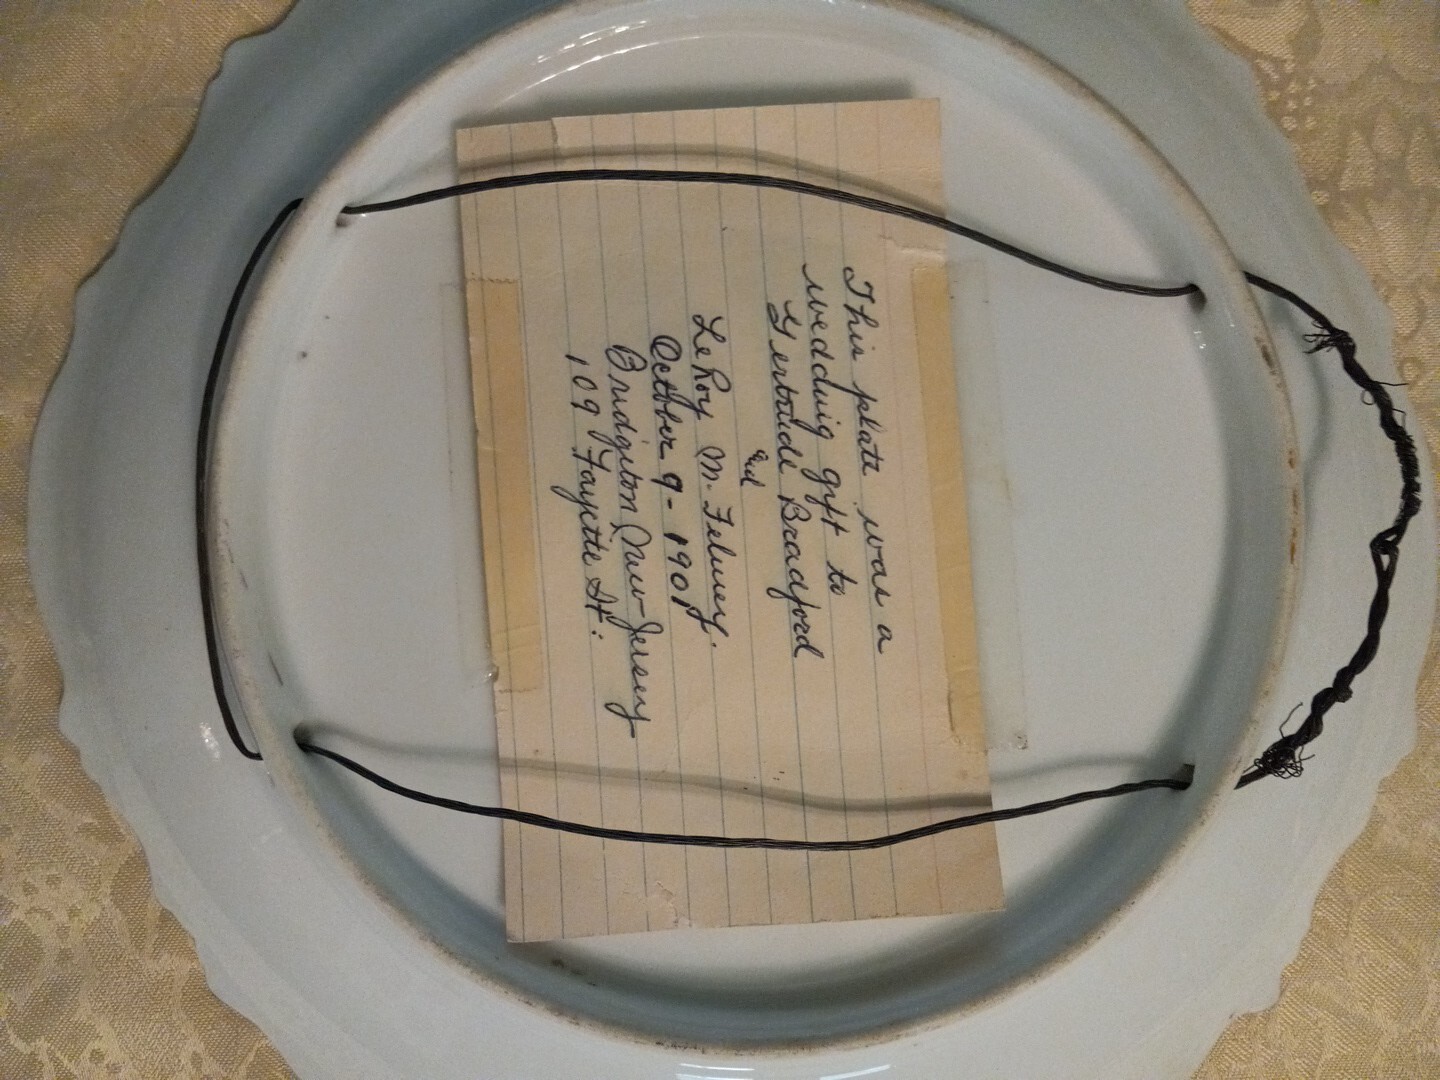 This plate was a
wedding gift to
Gertrude Bradford
and
LeRoy M. Filmey.
October 9 - 1901
Bridgeton New-Jersey
109 Fayette St.: